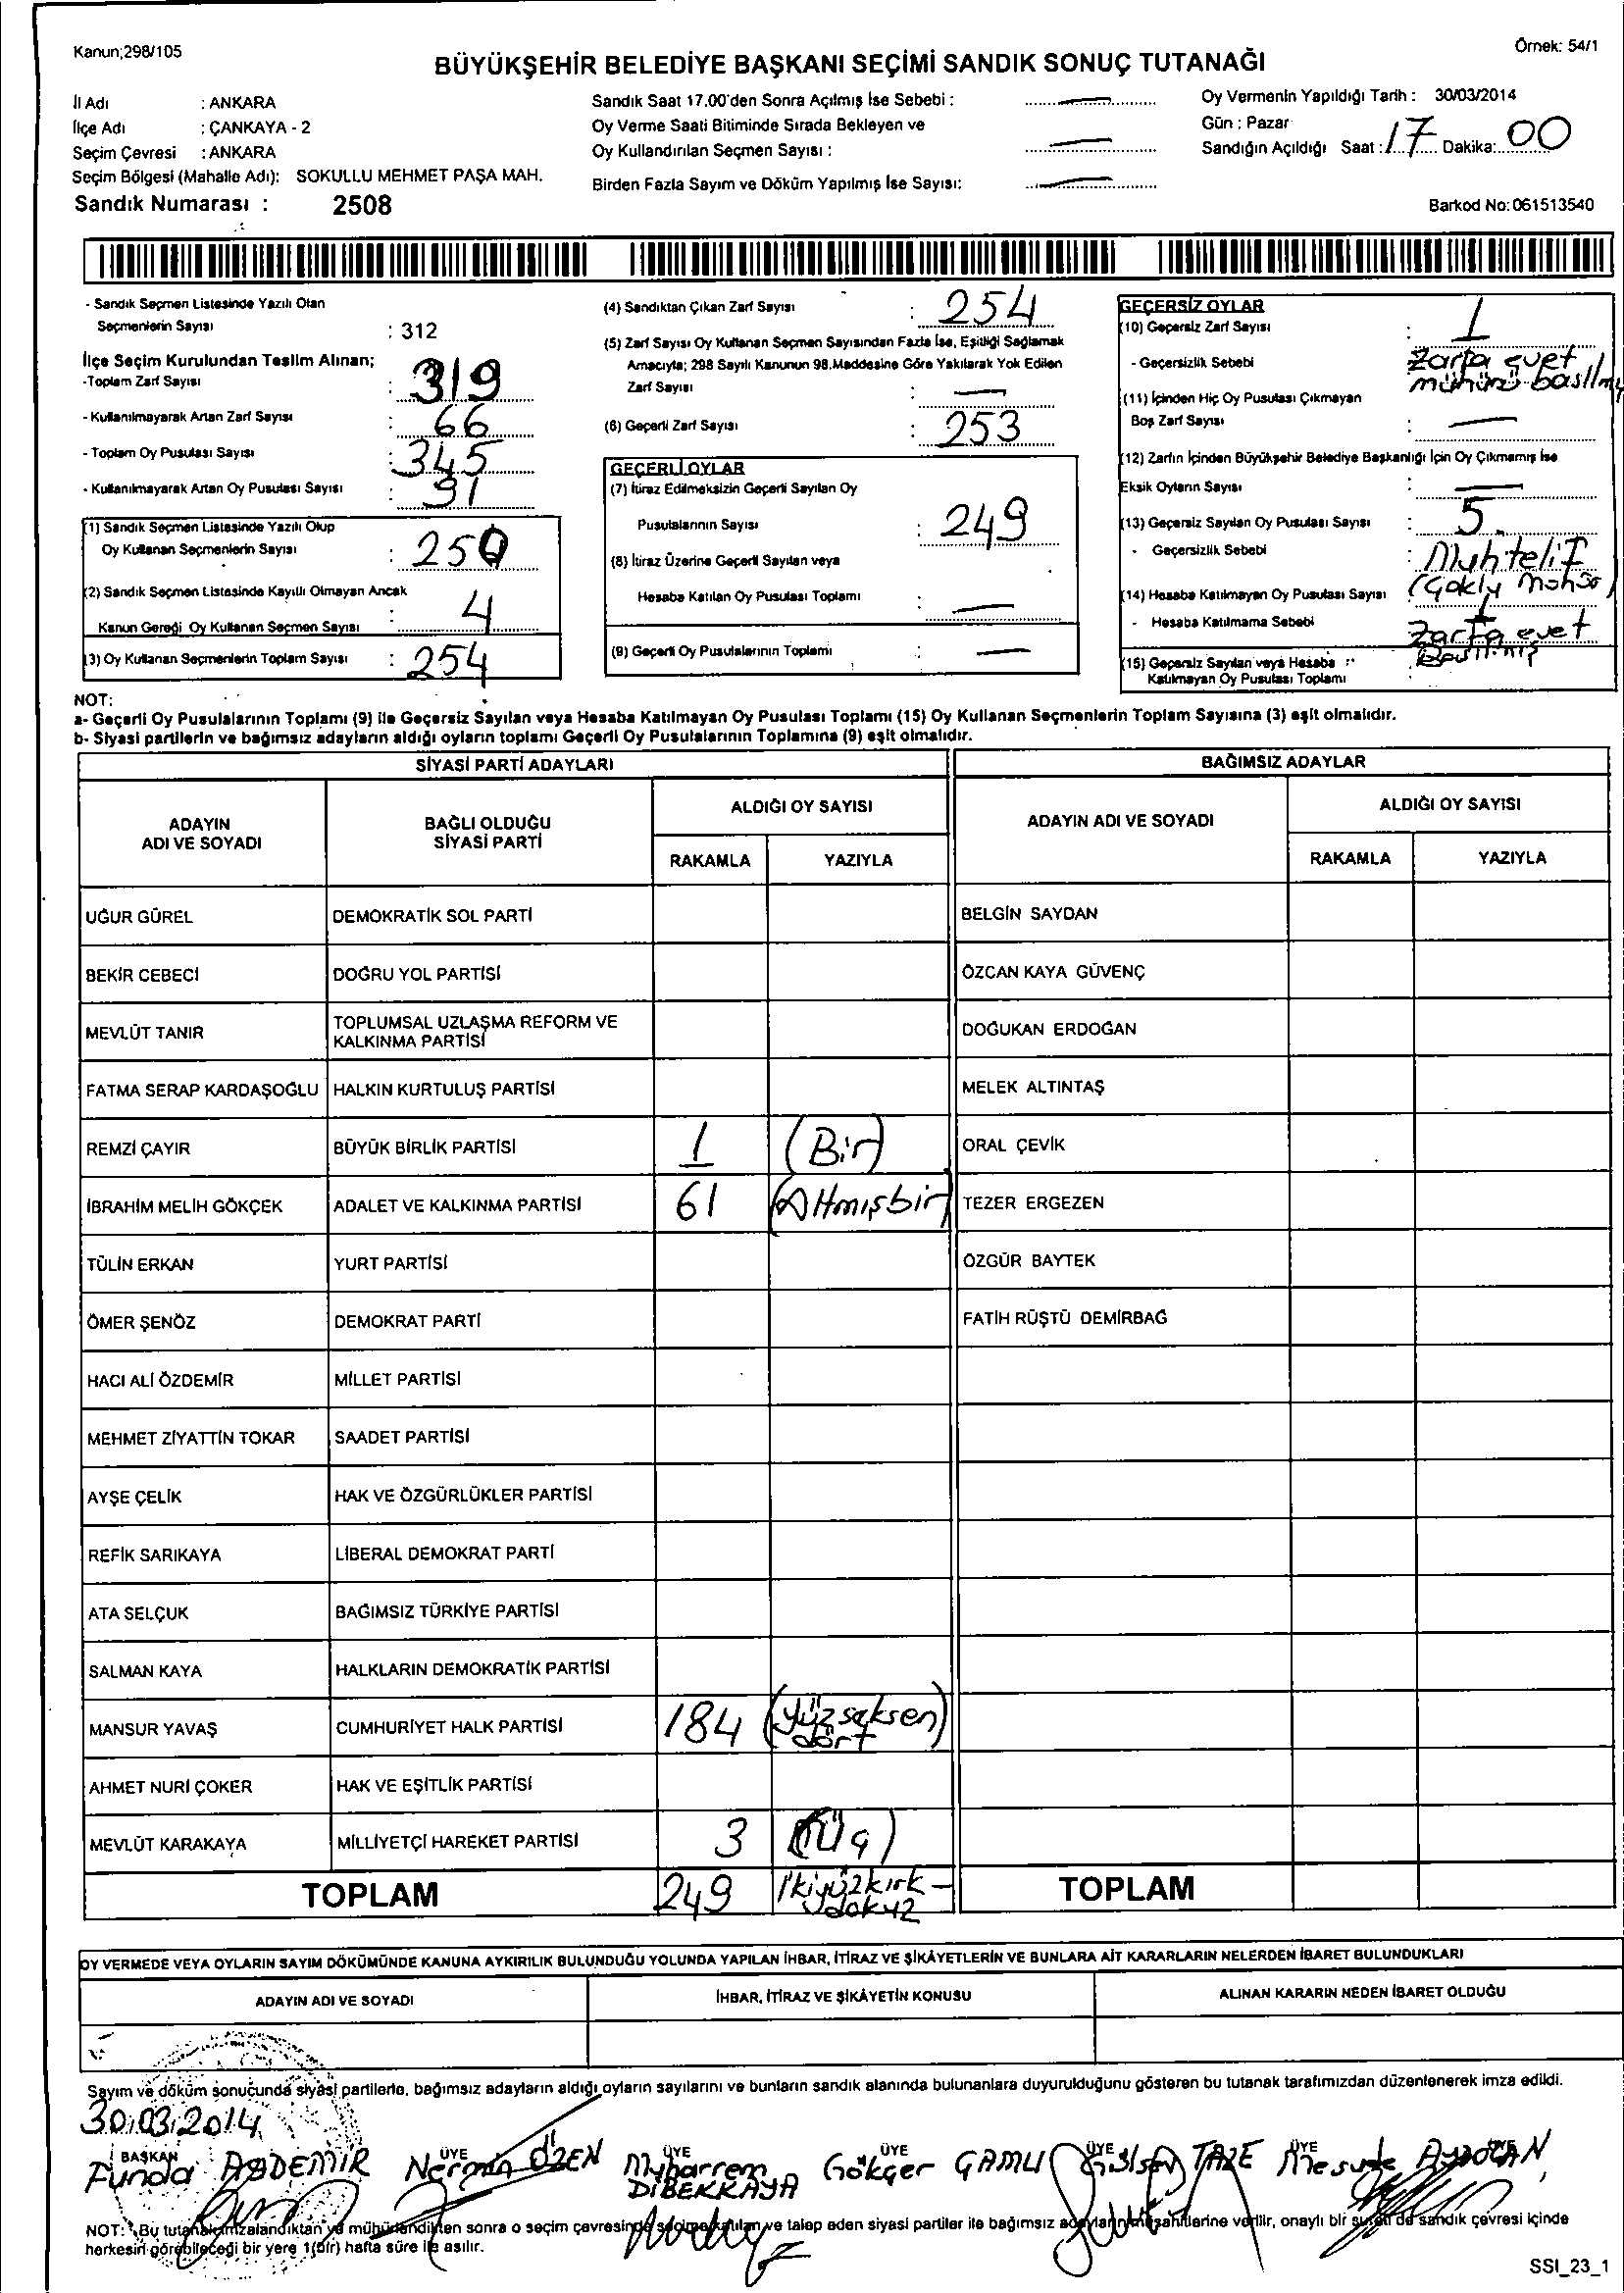 Kanun;298/105
Örnek: 54/1
BÜYÜKŞEHİR BELEDİYE BAŞKANI SEÇİMİ SANDIK SONUÇ TUTANAĞI
İl Adı : ANKARA
İlçe Adı : ÇANKAYA - 2
Seçim Çevresi : ANKARA
Seçim Bölgesi (Mahalle Adı): SOKULLU MEHMET PAŞA MAH.
Sandık Numarası : 2508
Sandık Saat 17.00'den Sonra Açılmış İse Sebebi :
Oy Verme Saati Bitiminde Sırada Bekleyen ve
Oy Kullandırılan Seçmen Sayısı :
Birden Fazla Sayım ve Döküm Yapılmış İse Sayısı:
Oy Vermenin Yapıldığı Tarih : 30/03/2014
Gün : Pazar
Sandığın Açıldığı Saat : 17 Dakika: 00
Barkod No: 061513540
- Sandık Seçmen Listesinde Yazılı Olan
Seçmenlerin Sayısı : 312
İlçe Seçim Kurulundan Teslim Alınan;
-Toplam Zarf Sayısı : 319
- Kullanılmayarak Artan Zarf Sayısı : 66
- Toplam Oy Pusulası Sayısı : 345
- Kullanılmayarak Artan Oy Pusulası Sayısı : 91
(1) Sandık Seçmen Listesinde Yazılı Olup
Oy Kullanan Seçmenlerin Sayısı : 250
(2) Sandık Seçmen Listesinde Kayıtlı Olmayan Ancak
Kanun Gereği Oy Kullanan Seçmen Sayısı : 4
(3) Oy Kullanan Seçmenlerin Toplam Sayısı : 254
(4) Sandıktan Çıkan Zarf Sayısı : 254
(5) Zarf Sayısı Oy Kullanan Seçmen Sayısından Fazla İse, Eşitliği Sağlamak
Amacıyla; 298 Sayılı Kanunun 98.Maddesine Göre Yakılarak Yok Edilen
Zarf Sayısı : —
(6) Geçerli Zarf Sayısı : 253
GEÇERLİ OYLAR
(7) İtiraz Edilmeksizin Geçerli Sayılan Oy
Pusulalarının Sayısı : 249
(8) İtiraz Üzerine Geçerli Sayılan veya
Hesaba Katılan Oy Pusulası Toplamı : —
(9) Geçerli Oy Pusulalarının Toplamı : —
GEÇERSİZ OYLAR
(10) Geçersiz Zarf Sayısı : 1
- Geçersizlik Sebebi : Zarfa evet
mühürü basılmış
(11) İçinden Hiç Oy Pusulası Çıkmayan
Boş Zarf Sayısı : —
(12) Zarfın İçinden Büyükşehir Belediye Başkanlığı İçin Oy Çıkmamış İse
Eksik Oyların Sayısı : —
(13) Geçersiz Sayılan Oy Pusulası Sayısı : 5
- Geçersizlik Sebebi : Muhtelif
(14) Hesaba Katılmayan Oy Pusulası Sayısı : 1
- Hesaba Katılmama Sebebi Zarfa evet
Basılmış
(15) Geçersiz Sayılan veya Hesaba
Katılmayan Oy Pusulası Toplamı :
NOT:
a- Geçerli Oy Pusulalarının Toplamı (9) ile Geçersiz Sayılan veya Hesaba Katılmayan Oy Pusulası Toplamı (15) Oy Kullanan Seçmenlerin Toplam Sayısına (3) eşit olmalıdır.
b- Siyasi partilerin ve bağımsız adayların aldığı oyların toplamı Geçerli Oy Pusulalarının Toplamına (9) eşit olmalıdır.
SİYASİ PARTİ ADAYLARI
BAĞIMSIZ ADAYLAR
ADAYIN
ADI VE SOYADI
BAĞLI OLDUĞU
SİYASİ PARTİ
ALDIĞI OY SAYISI
RAKAMLA YAZIYLA
ADAYIN ADI VE SOYADI
ALDIĞI OY SAYISI
RAKAMLA YAZIYLA
UĞUR GÜREL DEMOKRATİK SOL PARTİ BELGİN SAYDAN
BEKİR CEBECİ DOĞRU YOL PARTİSİ ÖZCAN KAYA GÜVENÇ
MEVLÜT TANIR TOPLUMSAL UZLAŞMA REFORM VE
KALKINMA PARTİSİ DOĞUKAN ERDOĞAN
FATMA SERAP KARDAŞOĞLU HALKIN KURTULUŞ PARTİSİ MELEK ALTINTAŞ
REMZİ ÇAYIR BÜYÜK BİRLİK PARTİSİ 1 (Bir) ORAL ÇEVİK
İBRAHİM MELİH GÖKÇEK ADALET VE KALKINMA PARTİSİ 61 (Altmışbir) TEZER ERGEZEN
TÜLİN ERKAN YURT PARTİSİ ÖZGÜR BAYTEK
ÖMER ŞENÖZ DEMOKRAT PARTİ FATİH RÜŞTÜ DEMİRBAĞ
HACI ALİ ÖZDEMİR MİLLET PARTİSİ
MEHMET ZİYATTİN TOKAR SAADET PARTİSİ
AYŞE ÇELİK HAK VE ÖZGÜRLÜKLER PARTİSİ
REFİK SARIKAYA LİBERAL DEMOKRAT PARTİ
ATA SELÇUK BAĞIMSIZ TÜRKİYE PARTİSİ
SALMAN KAYA HALKLARIN DEMOKRATİK PARTİSİ
MANSUR YAVAŞ CUMHURİYET HALK PARTİSİ 184 (yüzseksen
dört)
AHMET NURİ ÇOKER HAK VE EŞİTLİK PARTİSİ
MEVLÜT KARAKAYA MİLLİYETÇİ HAREKET PARTİSİ 3 (Üç)
TOPLAM 249 İkiyüzkırk-
dokuz TOPLAM
OY VERMEDE VEYA OYLARIN SAYIM DÖKÜMÜNDE KANUNA AYKIRILIK BULUNDUĞU YOLUNDA YAPILAN İHBAR, İTİRAZ VE ŞİKÂYETLERİN VE BUNLARA AİT KARARLARIN NELERDEN İBARET BULUNDUKLARI
ADAYIN ADI VE SOYADI İHBAR, İTİRAZ VE ŞİKÂYETİN KONUSU ALINAN KARARIN NEDEN İBARET OLDUĞU
Sayım ve döküm sonucunda siyasi partilerle, bağımsız adayların aldığı oyların sayılarını ve bunların sandık alanında bulunanlara duyurulduğunu gösteren bu tutanak tarafımızdan düzenlenerek imza edildi.
30.03.2014
BAŞKAN ÜYE ÜYE ÜYE ÜYE ÜYE
Funda Nermin ÖZEN Muharrem
DİBEKKAYA Gökçer GAMLI Mesude
NOT: Bu tutanak imzalandıktan ve mühürlendikten sonra o seçim çevresinde seçime katılan ve talep eden siyasi partiler ile bağımsız adayların müşahitlerine verilir, onaylı bir sureti de sandık çevresi içinde
herkesin görebileceği bir yere 1(bir) hafta süre ile asılır.
SSI_23_1